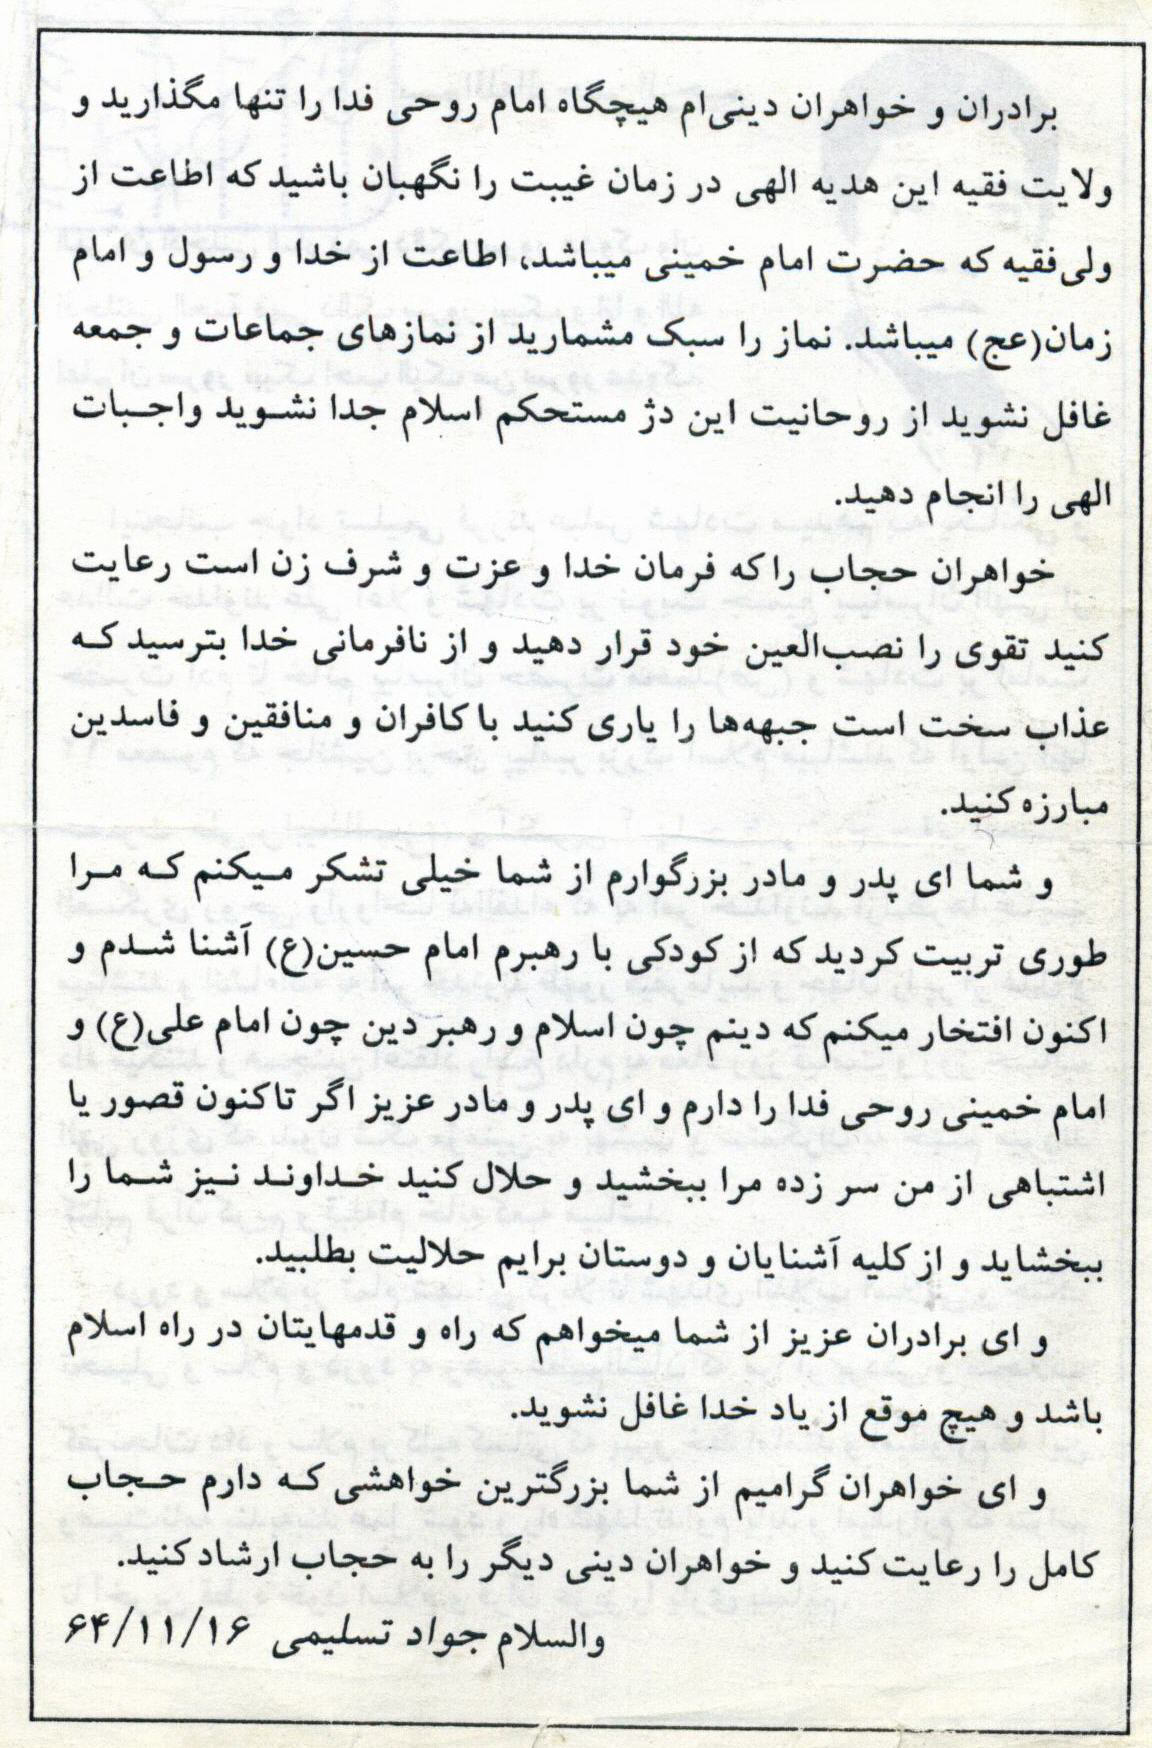 برادران و خواهران دینی‌ام هیچگاه امام روحی فدا را تنها مگذارید و
ولایت فقیه این هدیه الهی در زمان غیبت را نگهبان باشید که اطاعت از
ولی‌فقیه که حضرت امام خمینی میباشد، اطاعت از خدا و رسول و امام
زمان(عج) میباشد. نماز را سبک مشمارید از نمازهای جماعات و جمعه
غافل نشوید از روحانیت این دژ مستحکم اسلام جدا نشوید واجبات
الهی را انجام دهید.
خواهران حجاب را که فرمان خدا و عزت و شرف زن است رعایت
کنید تقوی را نصب‌العین خود قرار دهید و از نافرمانی خدا بترسید که
عذاب سخت است جبهه‌ها را یاری کنید با کافران و منافقین و فاسدین
مبارزه کنید.
و شما ای پدر و مادر بزرگوارم از شما خیلی تشکر میکنم که مرا
طوری تربیت کردید که از کودکی با رهبرم امام حسین(ع) آشنا شدم و
اکنون افتخار میکنم که دینم چون اسلام و رهبر دین چون امام علی(ع) و
امام خمینی روحی فدا را دارم و ای پدر و مادر عزیز اگر تاکنون قصور یا
اشتباهی از من سر زده مرا ببخشید و حلال کنید خداوند نیز شما را
ببخشاید و از کلیه آشنایان و دوستان برایم حلالیت بطلبید.
و ای برادران عزیز از شما میخواهم که راه و قدمهایتان در راه اسلام
باشد و هیچ موقع از یاد خدا غافل نشوید.
و ای خواهران گرامیم از شما بزرگترین خواهشی که دارم حجاب
کامل را رعایت کنید و خواهران دینی دیگر را به حجاب ارشاد کنید.
والسلام جواد تسلیمی ۶۴/۱۱/۱۶